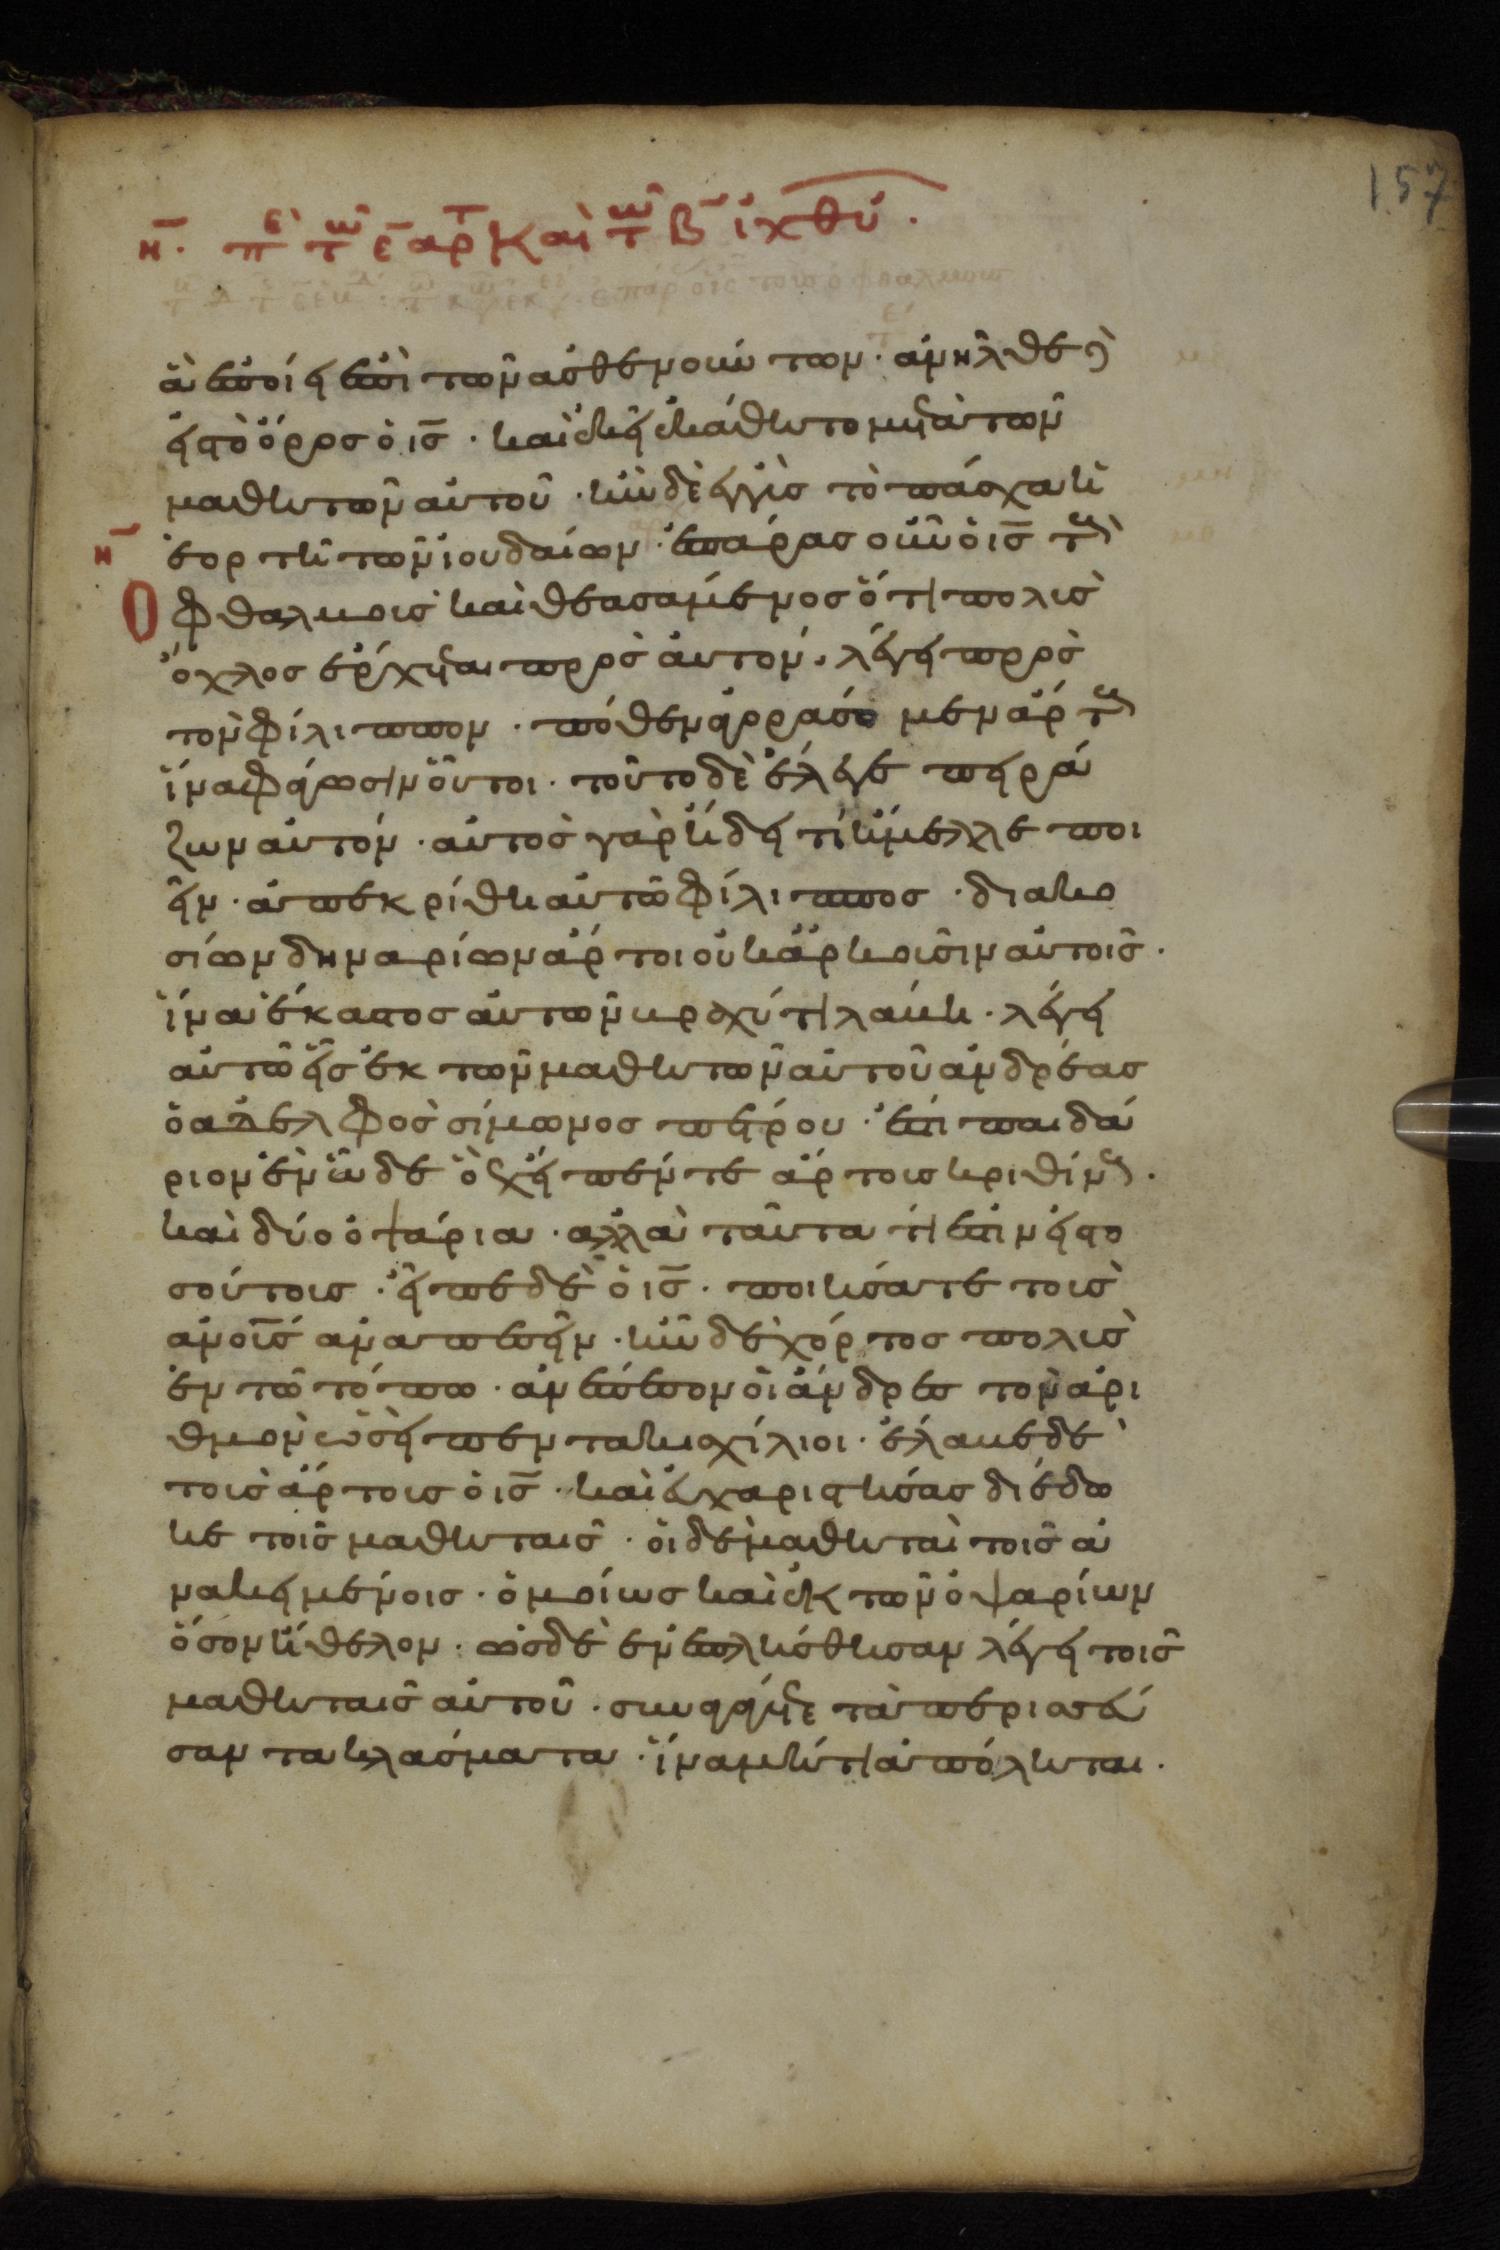 157
η̅· πὲ τω̑ ε̅ αρτ̅ καὶ τω̑ β̅ ἰχθύ·
ἃ ἐποίει ἐπὶ τῶν ἀσθενούντων· ἀνῆλθε δὲ
εἰς τὸ ὄρος ὁ ις̅· καὶ ἐκεῖ ἐκάθητο μετὰ τῶν
μαθητῶν αὐτοῦ· ἦν δὲ ἐγγὺς τὸ πάσχα ἡ
η̅ ἑορτὴ τῶν ἰουδαίων· ἐπάρας οὖν ὁ ις̅ τοὺς
Ὀφθαλμοις καὶ θεασάμενος ὅτι πολὶς
ὄχλος ἔρχεται πρὸς αὐτόν, λέγει πρὸς
τὸν φίλιππον· πόθεν ἀγοράσο μεν ἄρτους
ἵνα φάγωσιν οὗτοι· τοῦτο δὲ ἔλεγε πειρά
ζων αὐτόν· αὐτὸς γὰρ ἤδει τί ἤμελλε ποι
εῖν· ἀπεκρίθη αὐτῶ φίλιππος· διακο
σίων δηναρίων ἄρτοι οὐκ ἀρκοῖσιν αὐτοῖς·
ἵνα ἕκαστος αὐτῶν βραχύ τι λάβη· λέγει
αὐτῶ εἷς ἐκ τῶν μαθητῶν αὐτοῦ ἀνδρέας
ὁ ἀδελφὸς σίμωνος πέτρου· ἔστι παιδά
ριον ἓν ὧδε ὃ ἔχει πέντε ἄρτοις κριθίνους·
καὶ δύο ὀψάρια· ἀλλὰ ταῦτα τί ἐστιν εἰς το
σούτοις· εἶπε δὲ ὁ ις̅· ποιήσατε τοὶς
ἀνοῖς ἀναπεσεῖν· ἦν δὲ χόρτος πολὶς
ἐν τῶ τόπω· ἀνέπεσον οἱ ἄνδρες τὸν ἀρι
θμὸν ὡσεὶ πεντακιχίλιοι· ἔλαβε δὲ
τοὶς ἄρτοις ὁ ις̅· καὶ εὐχαριστήσας διέδω
κε τοῖς μαθηταῖς· οἱ δὲ μαθηταὶ τοῖς ἀ
νακειμένοις· ὁμοίως καὶ ἐκ τῶν ὀψαρίων
ὅσον ἤθελον· ὡς δὲ ἐνεπλήσθησαν λέγει τοῖς
μαθηταῖς αὐτοῦ· συναγάγετε τὰ περισσεύ
σαντα κλάσματα· ἵνα μήτι ἀπόληται·